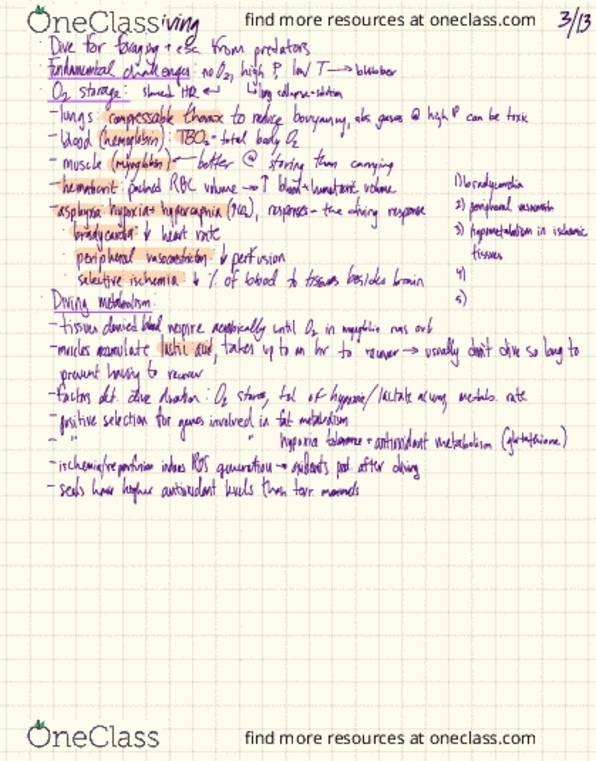 OneClass iving find more resources at oneclass.com 3/13
Dive for foraging + esc from predators
Fundamental challenges: no O2, high P, low T → blubber
O2 storage: slowed HR ↲ ↳ lung collapse
- lungs: compressable thorax to reduce bouyancy, abs gases @ high P can be toxic
- blood (hemoglobin): TBO2 - total body O2
- muscle (myoglobin) better @ storing than carrying
- hematocrit: packed RBC volume → ↑ blood + hematocrit volume
- asphyxia: hypoxia + hypercapnia (↑CO2), responses - the diving response
bradycardia: ↓ heart rate
peripheral vasoconstriction ↓ perfusion
selective ischemia ↓ % of blood to tissues besides brain
1) bradycardia
2) peripheral
3) hypometabolism in ischemic
tissues
4)
5)
Diving metabolism:
- tissues denied blood respire aerobically until O2 in myoglobin runs out
- muscles accumulate lactic acid, takes up to an hr to recover → usually don't dive so long to
prevent having to recover
- factors det. dive duration: O2 stores, tol of hypoxia/lactate accum, metab. rate
- positive selection for genes involved in fat metabolism
- " " hypoxia tolerance + antioxidant metabolism (glutathione)
- ischemia/reperfusion induces ROS generation → after diving
- seals have higher antioxidant levels than terr. mammals
OneClass find more resources at oneclass.com